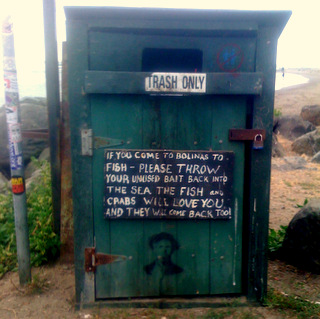 TRASH ONLY
IF YOU COME TO BOLINAS TO
FISH - PLEASE THROW
YOUR UNUSED BAIT BACK INTO
THE SEA THE FISH AND
CRABS WILL LOVE YOU
AND THEY WILL COME BACK TOO!